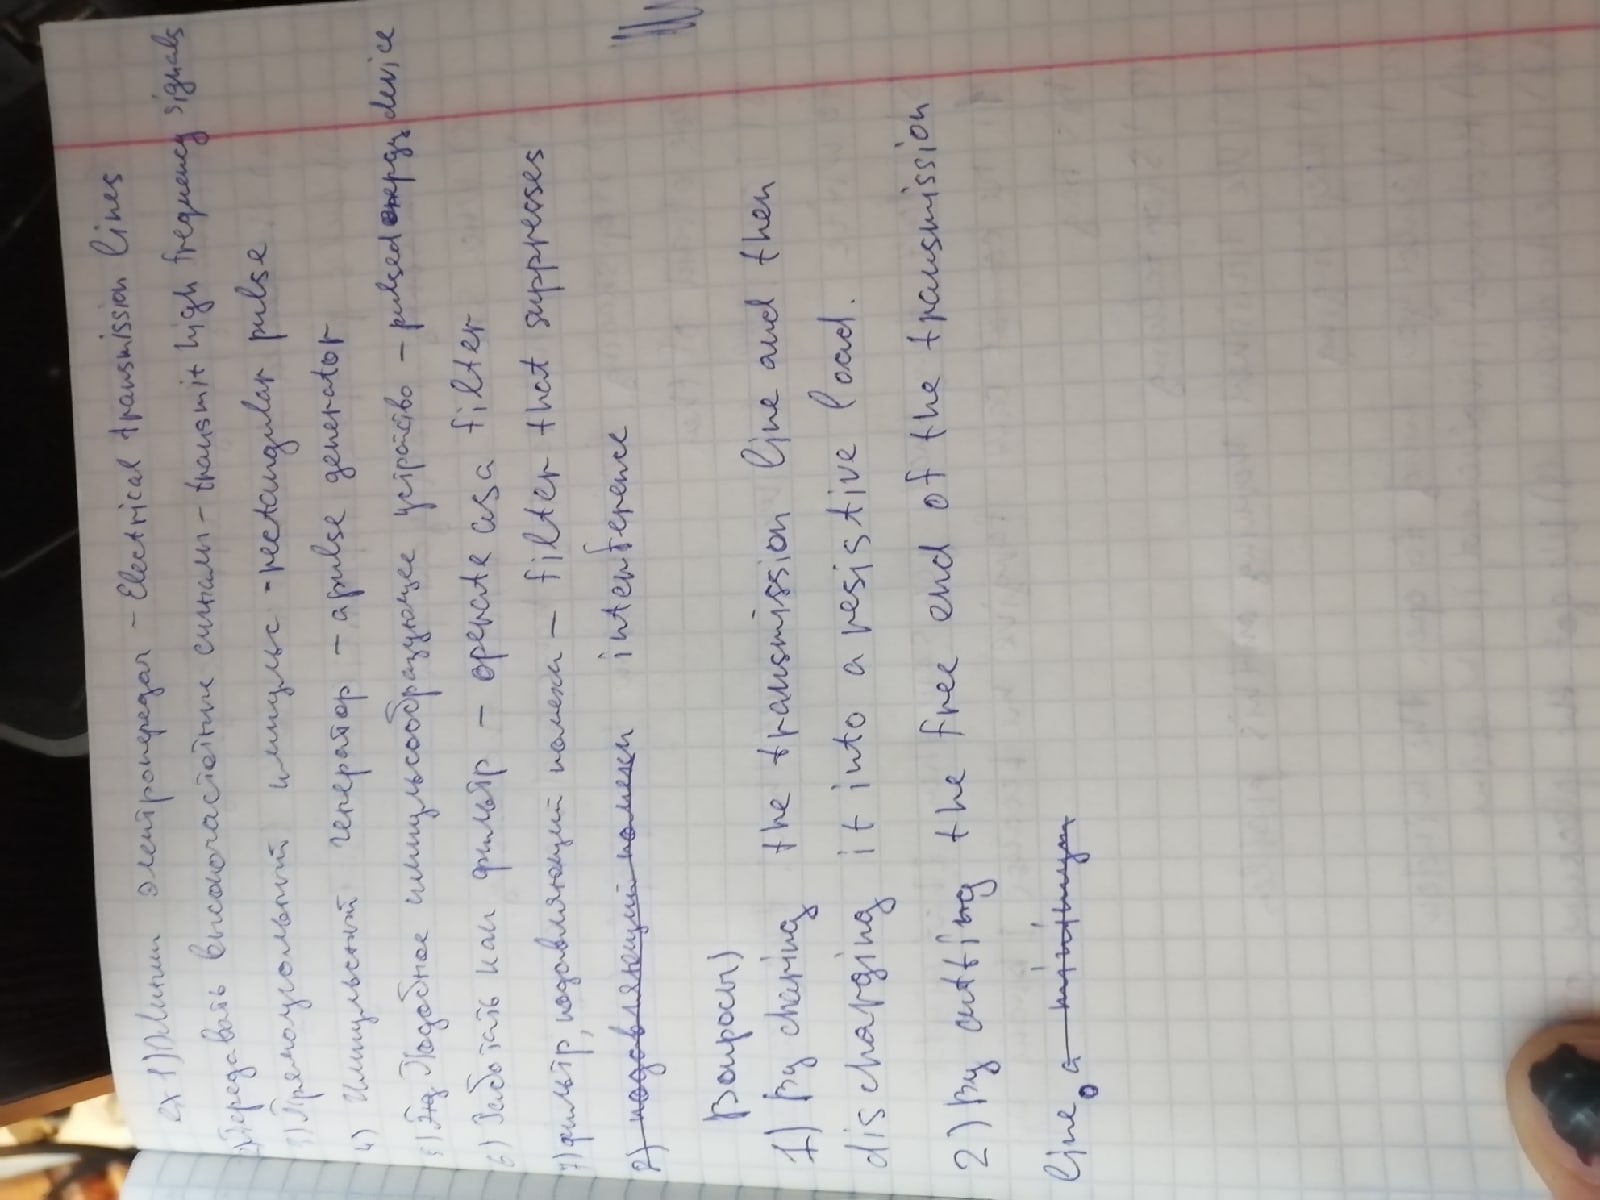 ex 1) Линии электропередач – Electrical transmission lines
2) Передавать высокочастотные сигналы – transmit high frequency signals
3) Прямоугольный импульс - rectangular pulse
4) Импульсный генератор – a pulse generator
5) Подобное импульсообразующее устройство – pulsed energy device
6) Работать как фильтр – operate as a filter
7) фильтр, подавляющий помехи – filter that suppresses
8) подавляющий помехи interference
Вопросы)
1) By charing the transmission line and then
discharging it into a resistive load.
2) By cutting the free end of the transmission
line. a minimum